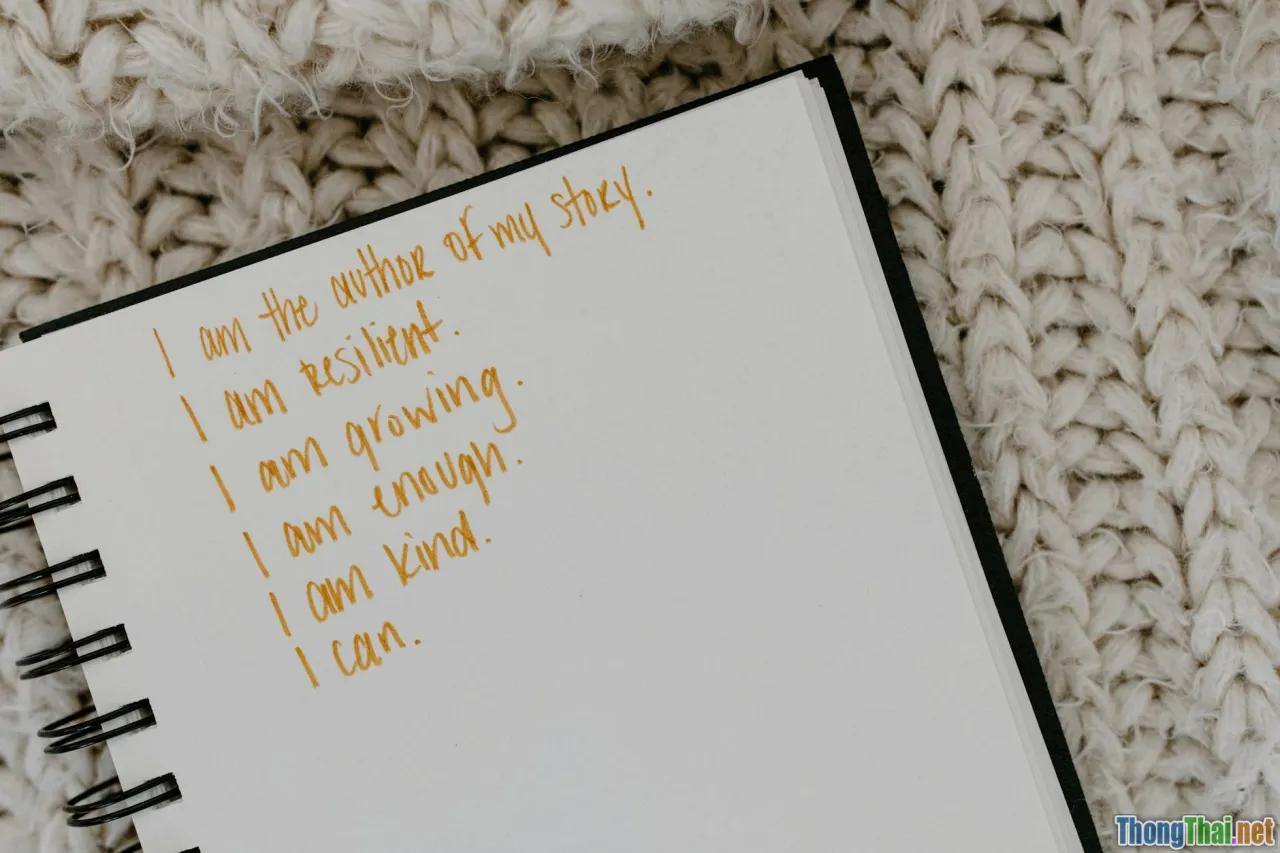 I am the author of my story.
I am resilient.
I am growing.
I am enough.
I am kind.
I can.
ThongThai.net